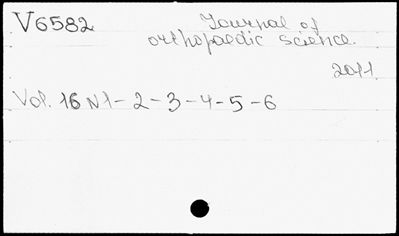 V6582
Journal of
orthopaedic science.
2011
Vol. 16 N1-2-3-4-5-6